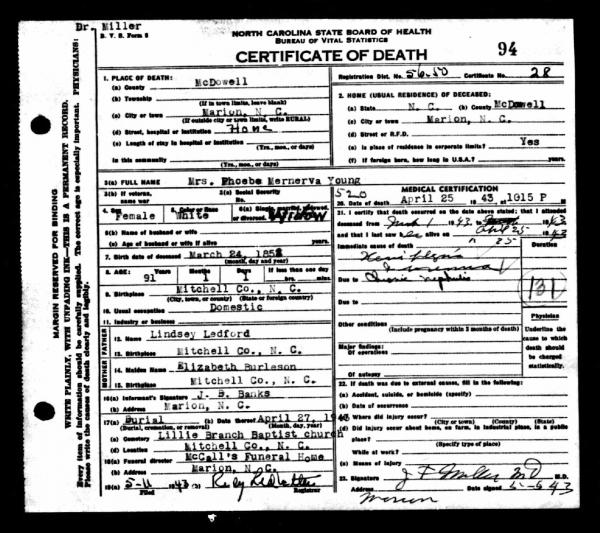 Dr. Miller
B. V. S. Form 8
NORTH CAROLINA STATE BOARD OF HEALTH
BUREAU OF VITAL STATISTICS
CERTIFICATE OF DEATH
94
Registration Dist. No. 56-50 Certificate No. 28
MARGIN RESERVED FOR BINDING
WRITE PLAINLY, WITH UNFADING INK—THIS IS A PERMANENT RECORD.
Every item of information should be carefully supplied. The correct age is especially important. PHYSICIANS:
Please write the causes of death clearly and legibly.
1. PLACE OF DEATH:
(a) County McDowell
(b) Township
(If in town limits, leave blank)
(c) City or town Marion, N. C.
(If outside city or town limits, write RURAL)
(d) Street, hospital or institution Home
(e) Length of stay in hospital or institution
(Yrs., mos., or days)
In this community
(Yrs., mos., or days)
2. HOME (USUAL RESIDENCE) OF DECEASED:
(a) State N. C. (b) County McDowell
(c) City or town Marion, N. C.
(d) Street or R.F.D.
(e) Is place of residence in corporate limits? Yes
(f) If foreign born, how long in U.S.A.? years.
3(a) FULL NAME Mrs. Phoebe Mernerva Young
3(b) If veteran, name war
3(c) Social Security No.
4. Sex Female
5. Color or Race White
6(a) Single, married, widowed, or divorced. Widow
6(b) Name of husband or wife
6(c) Age of husband or wife if alive years
7. Birth date of deceased March 24, 185
(month, day, year)
8. AGE: Years 91 Months 1 Days 1 If less than one day hrs. min.
9. Birthplace Mitchell Co., N. C.
(City, town, or county) (State or foreign country)
10. Usual occupation Domestic
11. Industry or business
FATHER
12. Name Lindsey Ledford
13. Birthplace Mitchell Co., N. C.
MOTHER
14. Maiden Name Elizabeth Burleson
15. Birthplace Mitchell Co., N. C.
16(a) Informant's Signature J. B. Banks
(b) Address Marion, N. C.
17(a) Burial (b) Date thereof April 27, 1943
(Burial, cremation, or removal) (Month, day, year)
(c) Cemetery Lillie Branch Baptist church
(d) Location Mitchell Co., N. C.
18(a) Funeral director McCall's Funeral Home
(b) Address Marion, N. C.
19(a) 5-11 1943 (b)
Filed Registrar
MEDICAL CERTIFICATION
520
20. Date of death April 25 1943, 1015 P M
21. I certify that death occurred on the date above stated; that I attended
deceased from 1943 to April 25 1943
and that I last saw alive on 25 1943
Immediate cause of death
Duration
Hemiplegia
Due to Chronic nephritis
Due to
131
Other conditions
(Include pregnancy within 3 months of death)
Major findings:
Of operations
Of autopsy
Physician
Underline the cause to which death should be charged statistically.
22. If death was due to external causes, fill in the following:
(a) Accident, suicide, or homicide (specify)
(b) Date of occurrence
(c) Where did injury occur?
(City or town) (County) (State)
(d) Did injury occur about home, on farm, in industrial place, in a public place?
(Specify type of place)
While at work?
(e) Means of injury
23. Signature J F Miller MD M.D.
Address Marion Date signed 5-5 43